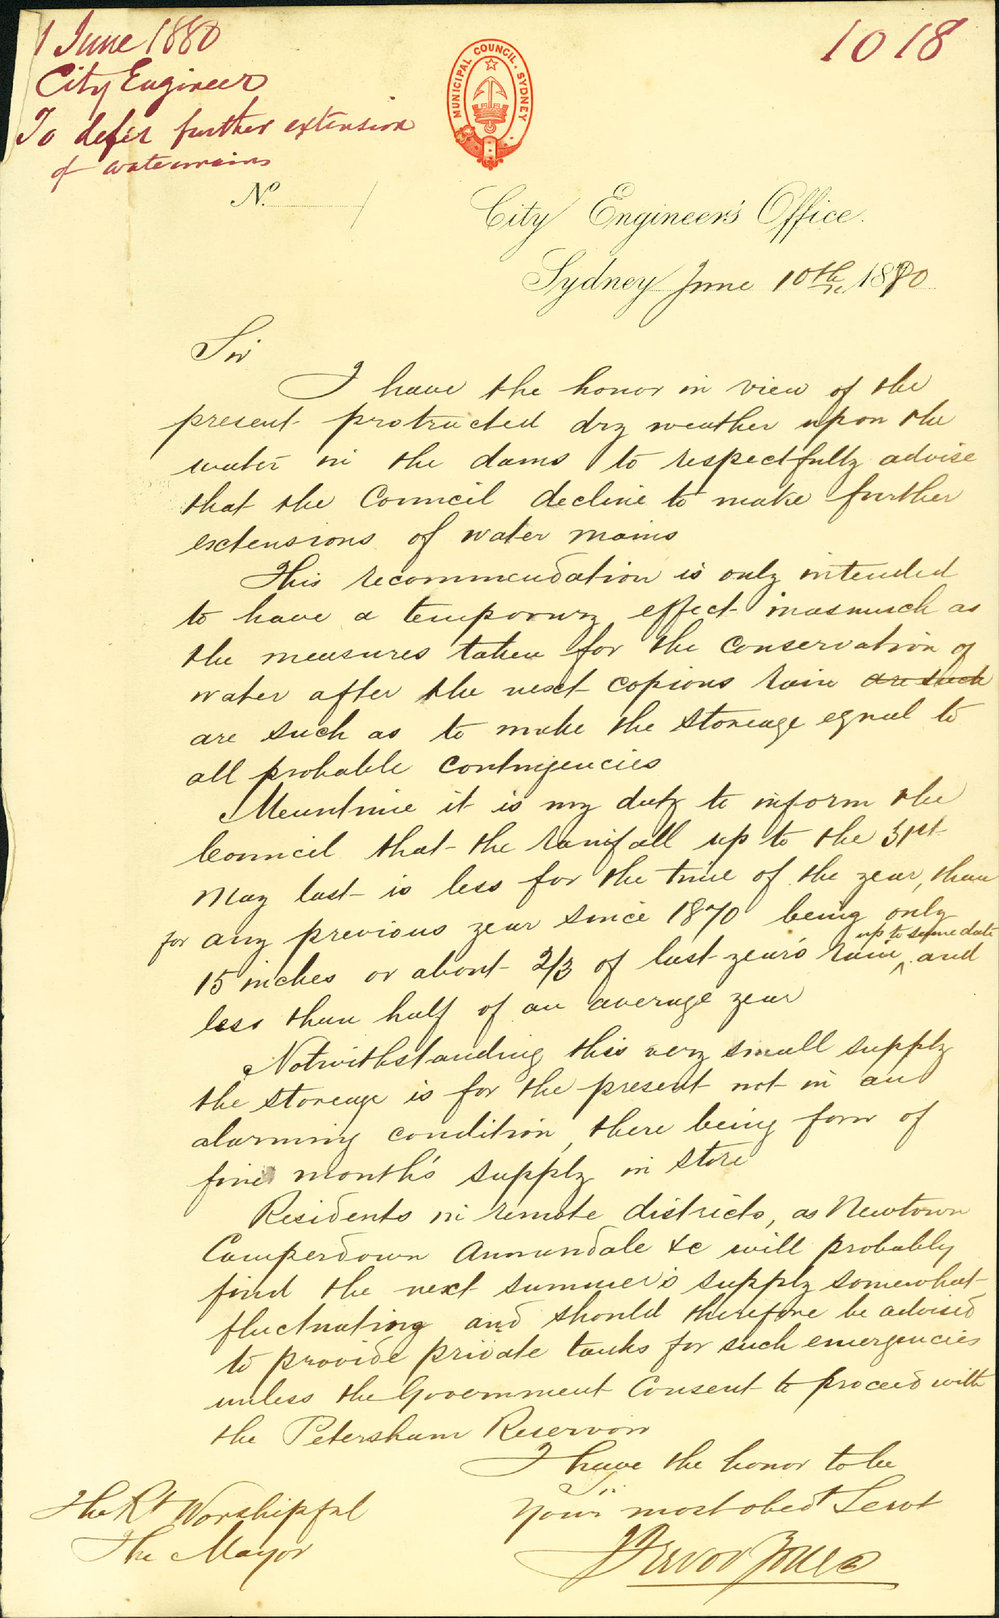 1 June 1880
City Engineer
To defer further extension
of watermains
1018
MUNICIPAL COUNCIL. SYDNEY
No.
City Engineer's Office.
Sydney June 10th 1880
Sir
I have the honor in view of the
present protracted dry weather upon the
water in the dams to respectfully advise
that the Council decline to make further
extensions of water mains
This recommendation is only intended
to have a temporary effect inasmuch as
the measures taken for the conservation of
water after the next copious rain are such
are such as to make the storeage equal to
all probable contingencies
Meantime it is my duty to inform the
Council that the rainfall up to the 31st
May last is less for the time of the year, than
for any previous year since 1870 being only
15 inches or about 2/3 of last year's rain up to same date and
less than half of an average year
Notwithstanding this very small supply
the storeage is for the present not in an
alarming condition, there being four of
five month's supply in store
Residents in remote districts, as Newtown
Camperdown Annandale &c will probably
find the next summer's supply somewhat
fluctuating and should therefore be advised
to provide private tanks for such emergencies
unless the Government Consent to proceed with
the Petersham Reservoir
I have the honor to be
Sir
Your most obedt Servt
J Trevor Jones
The Rt Worshipful
The Mayor